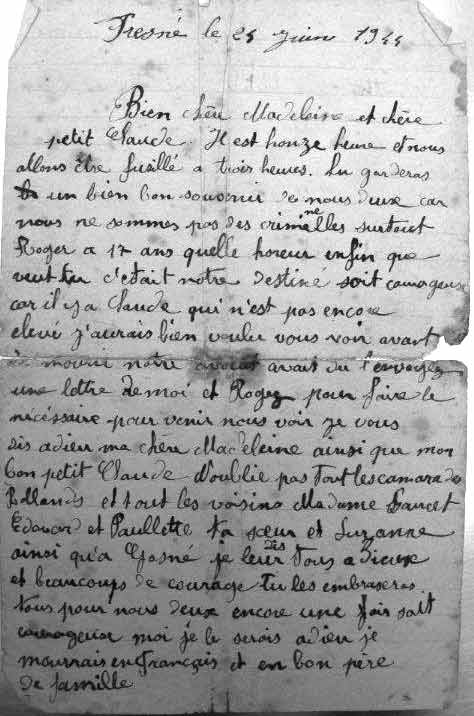 Fresne le 25 juin 1944
Bien chère Madeleine et chère
petit Claude. Il est honze heure et nous
allons être fusillé a trois heures. Tu garderas
un bien bon souvenir de nous deux car
nous ne sommes pas des criminelles surtout
Roger a 17 ans quelle horeur enfin que
veut tu c'etait notre destiné soit courageuse
car il y a Claude qui n'est pas encore
elevé j'aurais bien voulu vous voir avant
de mourir notre avocat avait du t'envoyez
une lettre de moi et Roger pour faire le
nécéssaire pour venir nous voir je vous
dis adieu ma chere Madeleine ainsi que mon
bon petit Claude N'oublie pas tout les camarades
Rollands et tout les voisins Madame
Edouard et Paullette ta sœur et Suzanne
ainsi qu'a Gosné je leur dis tous adieux
et beaucoups de courage tu les embraseras
tous pour nous deux encore une fois soit
courageuse moi je le serais adieu je
mourrais en français et en bon père
de famille